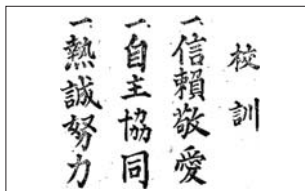 校訓
一信頼敬愛
一自主協同
一熱誠努力